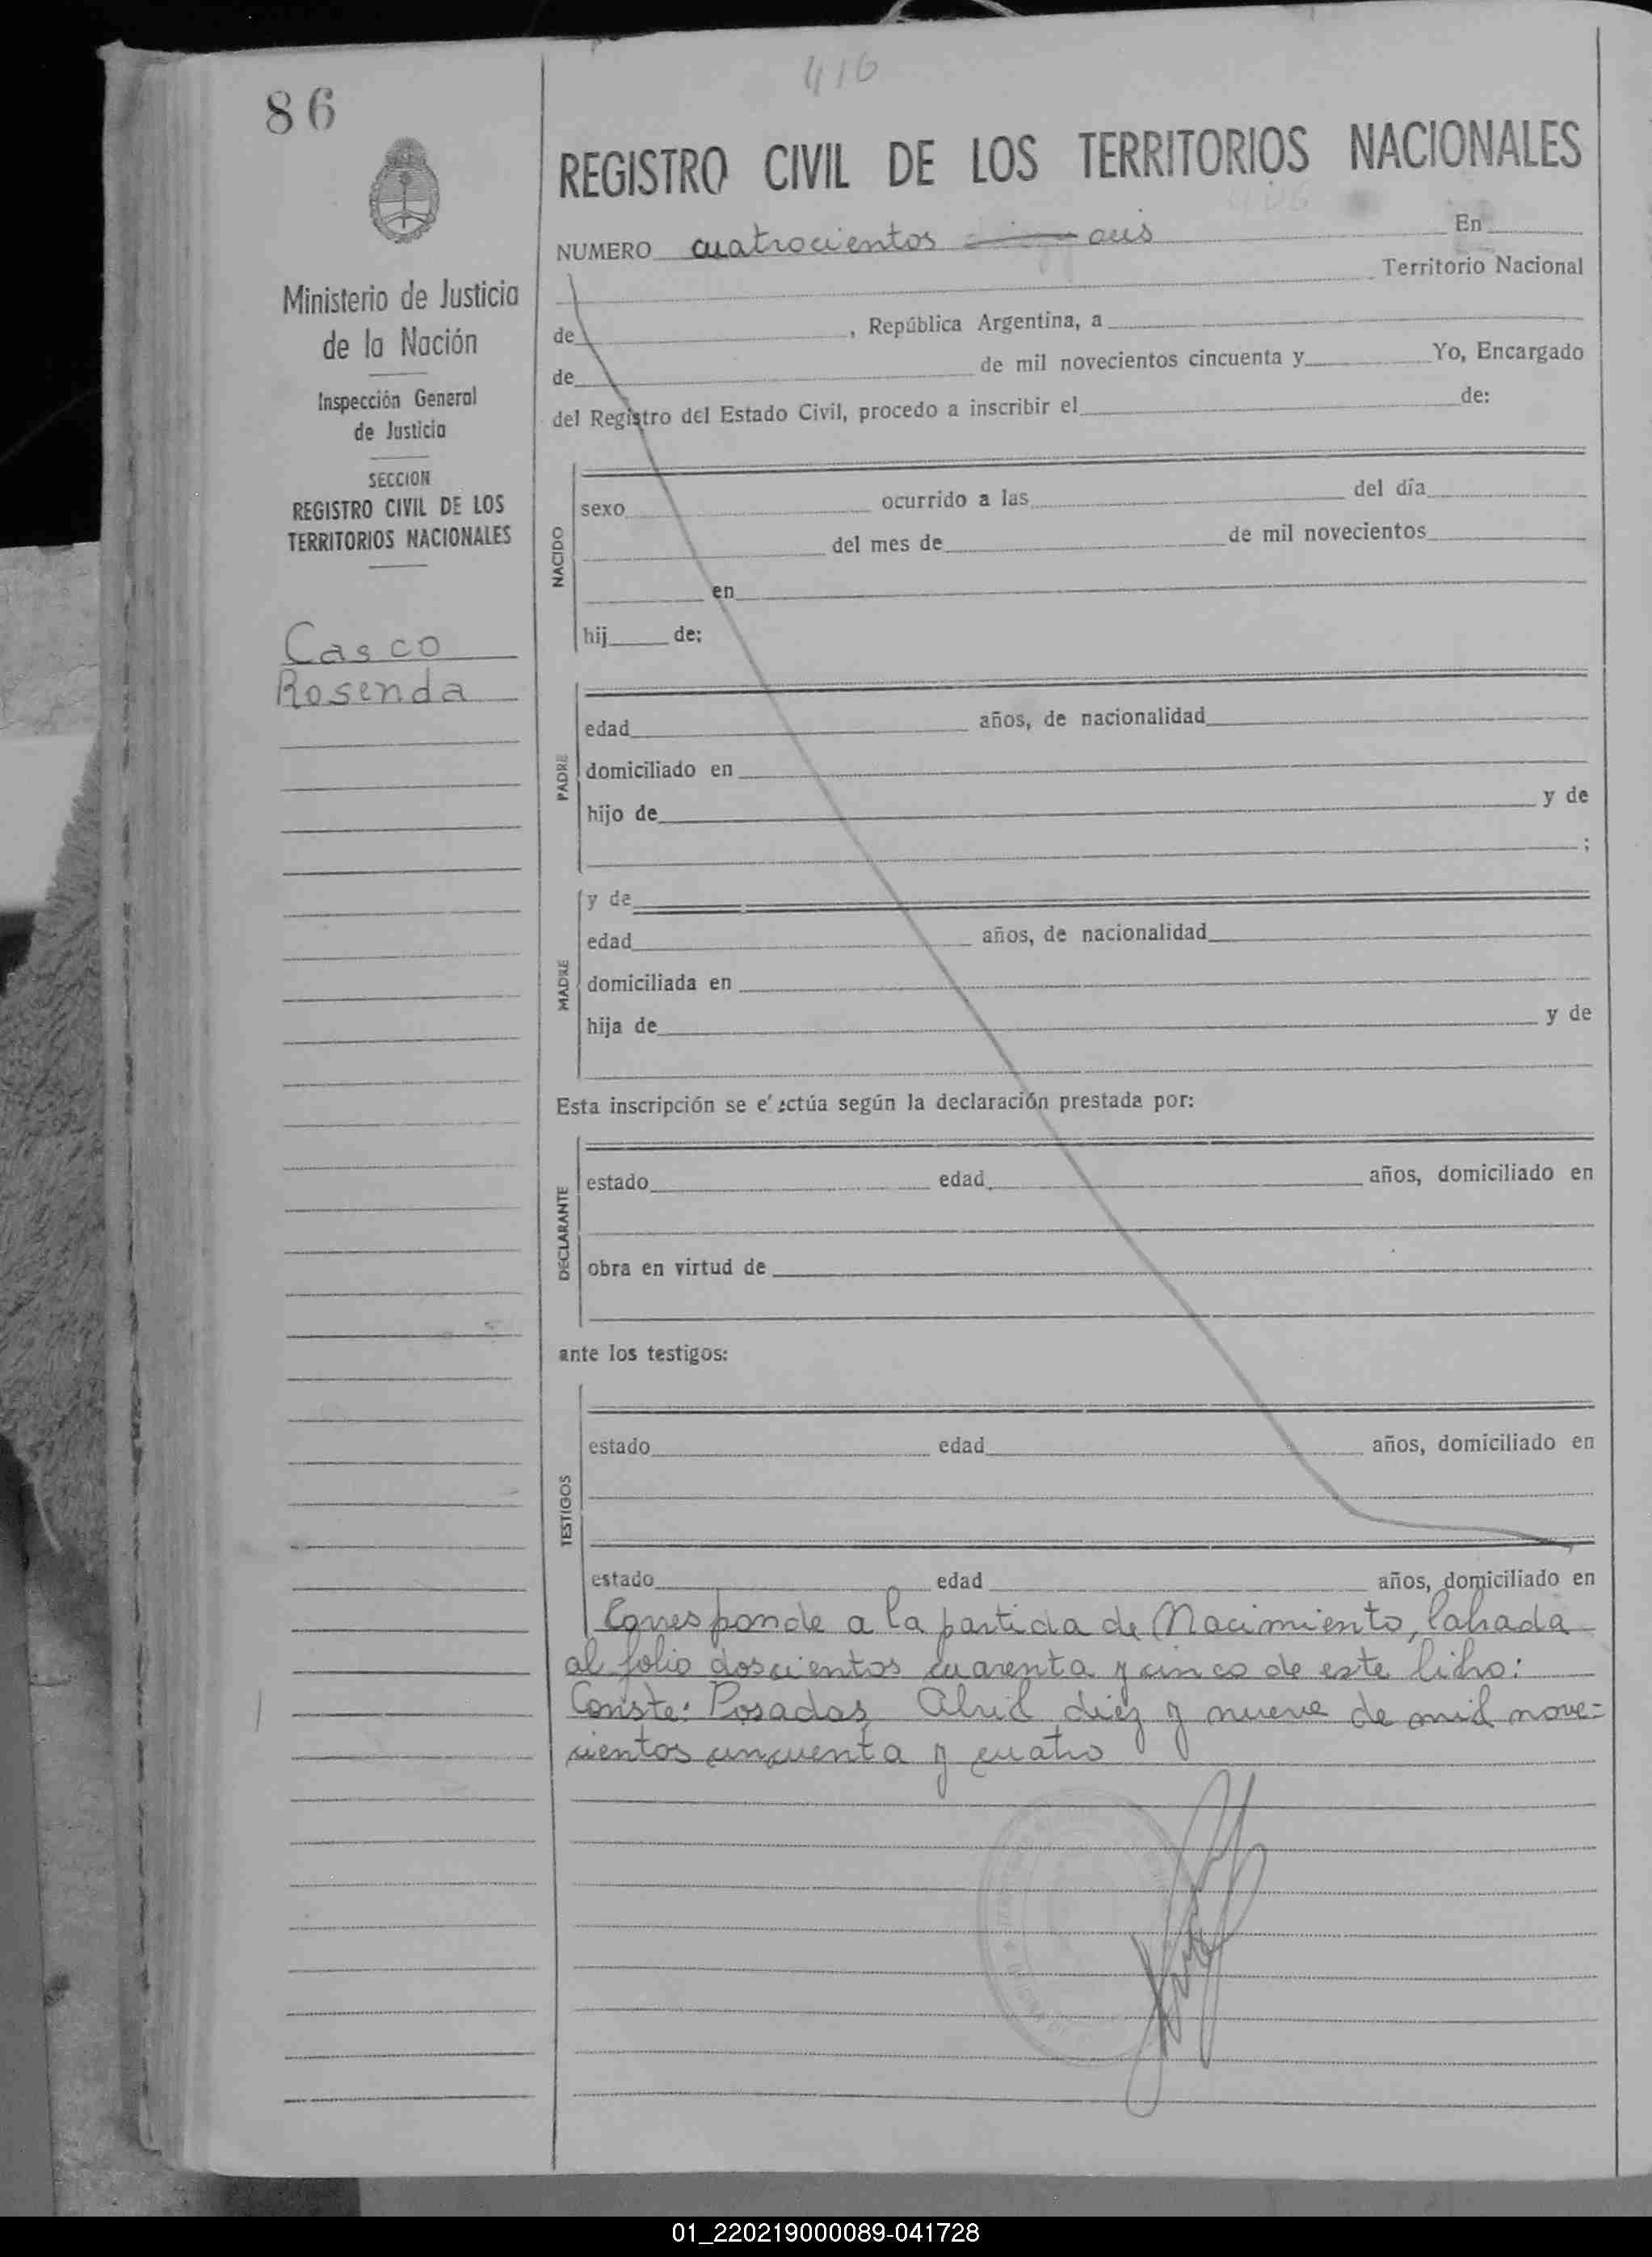 86
416
REGISTRO CIVIL DE LOS TERRITORIOS NACIONALES
NUMERO cuatrocientos seis En
Territorio Nacional
de , República Argentina, a
de de mil novecientos cincuenta y Yo, Encargado
del Registro del Estado Civil, procedo a inscribir el de:
Ministerio de Justicia
de la Nación
Inspección General
de Justicia
SECCION
REGISTRO CIVIL DE LOS
TERRITORIOS NACIONALES
Casco
Rosenda
NACIDO
sexo ocurrido a las del día
del mes de de mil novecientos
en
hij de:
PADRE
edad años, de nacionalidad
domiciliado en
hijo de y de
;
MADRE
y de
edad años, de nacionalidad
domiciliada en
hija de y de
Esta inscripción se e'ectúa según la declaración prestada por:
DECLARANTE
estado edad años, domiciliado en
obra en virtud de
ante los testigos:
TESTIGOS
estado edad años, domiciliado en
estado edad años, domiciliado en
Corresponde a la partida de Nacimiento, labrada
al folio doscientos cuarenta y cinco de este libro:
Conste: Posadas, Abril diez y nueve de mil nove=
cientos cincuenta y cuatro
01_220219000089-041728